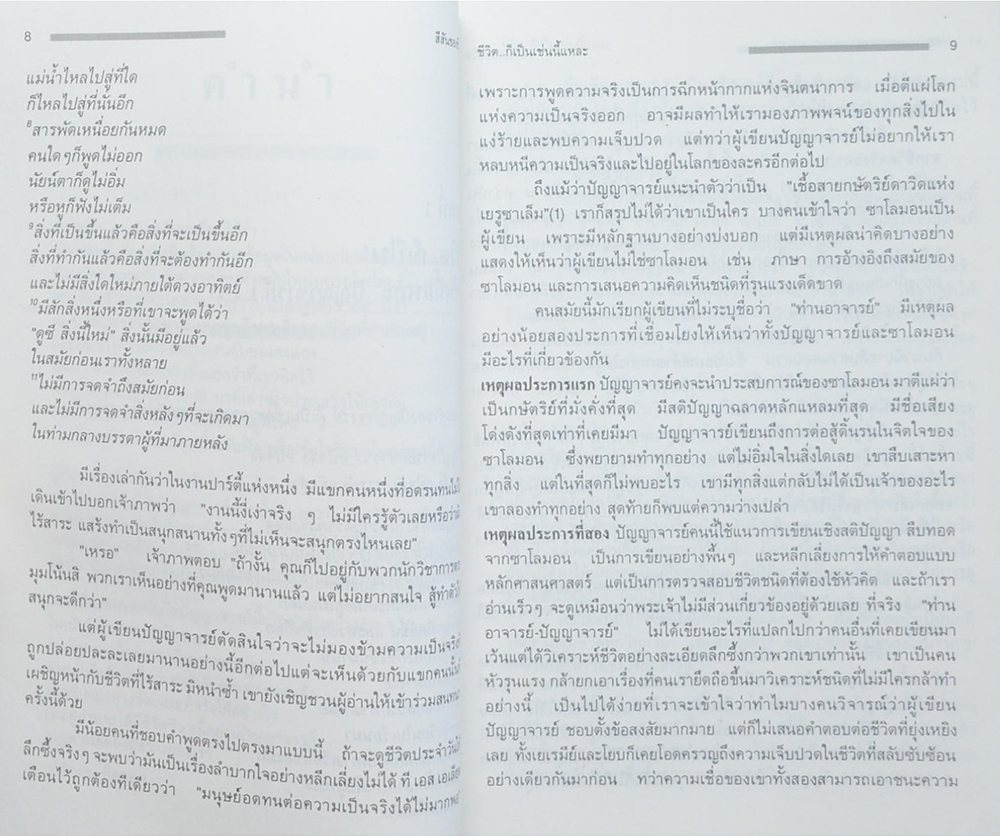 8
สีสันของชี
แม่น้ำไหลไปสู่ที่ใด
ก็ไหลไปสู่ที่นั่นอีก
8สารพัดเหนื่อยกันหมด
คนใดๆก็พูดไม่ออก
นัยน์ตาก็ดูไม่อิ่ม
หรือหูก็ฟังไม่เต็ม
9สิ่งที่เป็นขึ้นแล้วคือสิ่งที่จะเป็นขึ้นอีก
สิ่งที่ทำกันแล้วคือสิ่งที่จะต้องทำกันอีก
และไม่มีสิ่งใดใหม่ภายใต้ดวงอาทิตย์
10มีสักสิ่งหนึ่งหรือที่เขาจะพูดได้ว่า
"ดูซี สิ่งนี้ใหม่" สิ่งนั้นมีอยู่แล้ว
ในสมัยก่อนเราทั้งหลาย
11ไม่มีการจดจำถึงสมัยก่อน
และไม่มีการจดจำสิ่งหลังๆที่จะเกิดมา
ในท่ามกลางบรรดาผู้ที่มาภายหลัง
มีเรื่องเล่ากันว่าในงานปาร์ตี้แห่งหนึ่ง มีแขกคนหนึ่งที่อดรนทนไม่
เดินเข้าไปบอกเจ้าภาพว่า "งานนี้งี่เง่าจริง ๆ ไม่มีใครรู้ตัวเลยหรือว่ามั
ไร้สาระ แสร้งทำเป็นสนุกสนานทั้งๆที่ไม่เห็นจะสนุกตรงไหนเลย"
"เหรอ" เจ้าภาพตอบ "ถ้างั้น คุณก็ไปอยู่กับพวกนักวิชาการตร
มุมโน้นสิ พวกเราเห็นอย่างที่คุณพูดมานานแล้ว แต่ไม่อยากสนใจ สู้ทำตัวใ
สนุกจะดีกว่า"
แต่ผู้เขียนปัญญาจารย์ตัดสินใจว่าจะไม่มองข้ามความเป็นจริงที่
ถูกปล่อยปละละเลยมานานอย่างนี้อีกต่อไปแต่จะเห็นด้วยกับแขกคนนั้นที่
เผชิญหน้ากับชีวิตที่ไร้สาระ มิหนำซ้ำ เขายังเชิญชวนผู้อ่านให้เข้าร่วมสนทนา
ครั้งนี้ด้วย
มีน้อยคนที่ชอบคำพูดตรงไปตรงมาแบบนี้ ถ้าจะดูชีวิตประจำวันให้
ลึกซึ้งจริงๆ จะพบว่ามันเป็นเรื่องลำบากใจอย่างหลีกเลี่ยงไม่ได้ ที เอส เอเลียต
เตือนไว้ถูกต้องทีเดียวว่า "มนุษย์อดทนต่อความเป็นจริงได้ไม่มากพอ"
ชีวิต..ก็เป็นเช่นนี้แหละ
9
เพราะการพูดความจริงเป็นการฉีกหน้ากากแห่งจินตนาการ เมื่อตีแผ่โลก
แห่งความเป็นจริงออก อาจมีผลทำให้เรามองภาพพจน์ของทุกสิ่งไปใน
แง่ร้ายและพบความเจ็บปวด แต่ทว่าผู้เขียนปัญญาจารย์ไม่อยากให้เรา
หลบหนีความเป็นจริงและไปอยู่ในโลกของละครอีกต่อไป
ถึงแม้ว่าปัญญาจารย์แนะนำตัวว่าเป็น "เชื้อสายกษัตริย์ดาวิดแห่ง
เยรูซาเล็ม"(1) เราก็สรุปไม่ได้ว่าเขาเป็นใคร บางคนเข้าใจว่า ซาโลมอนเป็น
ผู้เขียน เพราะมีหลักฐานบางอย่างบ่งบอก แต่มีเหตุผลน่าคิดบางอย่าง
แสดงให้เห็นว่าผู้เขียนไม่ใช่ซาโลมอน เช่น ภาษา การอ้างอิงถึงสมัยของ
ซาโลมอน และการเสนอความคิดเห็นชนิดที่รุนแรงเด็ดขาด
คนสมัยนี้มักเรียกผู้เขียนที่ไม่ระบุชื่อว่า "ท่านอาจารย์" มีเหตุผล
อย่างน้อยสองประการที่เชื่อมโยงให้เห็นว่าทั้งปัญญาจารย์และซาโลมอน
มีอะไรที่เกี่ยวข้องกัน
เหตุผลประการแรก ปัญญาจารย์คงจะนำประสบการณ์ของซาโลมอน มาตีแผ่ว่า
เป็นกษัตริย์ที่มั่งคั่งที่สุด มีสติปัญญาฉลาดหลักแหลมที่สุด มีชื่อเสียง
โด่งดังที่สุดเท่าที่เคยมีมา ปัญญาจารย์เขียนถึงการต่อสู้ดิ้นรนในจิตใจของ
ซาโลมอน ซึ่งพยายามทำทุกอย่าง แต่ไม่อิ่มใจในสิ่งใดเลย เขาสืบเสาะหา
ทุกสิ่ง แต่ในที่สุดก็ไม่พบอะไร เขามีทุกสิ่งแต่กลับไม่ได้เป็นเจ้าของอะไร
เขาลองทำทุกอย่าง สุดท้ายก็พบแต่ความว่างเปล่า
เหตุผลประการที่สอง ปัญญาจารย์คนนี้ใช้แนวการเขียนเชิงสติปัญญา สืบทอด
จากซาโลมอน เป็นการเขียนอย่างพื้นๆ และหลีกเลี่ยงการให้คำตอบแบบ
หลักศาสนศาสตร์ แต่เป็นการตรวจสอบชีวิตชนิดที่ต้องใช้หัวคิด และถ้าเรา
อ่านเร็วๆ จะดูเหมือนว่าพระเจ้าไม่มีส่วนเกี่ยวข้องอยู่ด้วยเลย ที่จริง "ท่าน
อาจารย์-ปัญญาจารย์" ไม่ได้เขียนอะไรที่แปลกไปกว่าคนอื่นที่เคยเขียนมา
เว้นแต่ได้วิเคราะห์ชีวิตอย่างละเอียดลึกซึ้งกว่าพวกเขาเท่านั้น เขาเป็นคน
หัวรุนแรง กล้ายกเอาเรื่องที่คนเรายึดถือขึ้นมาวิเคราะห์ชนิดที่ไม่มีใครกล้าทำ
อย่างนี้ เป็นไปได้ง่ายที่เราจะเข้าใจว่าทำไมบางคนวิจารณ์ว่าผู้เขียน
ปัญญาจารย์ ชอบตั้งข้อสงสัยมากมาย แต่ก็ไม่เสนอคำตอบต่อชีวิตที่ยุ่งเหยิง
เลย ทั้งเยเรมีย์และโยบก็เคยโอดครวญถึงความเจ็บปวดในชีวิตที่สลับซับซ้อน
อย่างเดียวกันมาก่อน ทว่าความเชื่อของเขาทั้งสองสามารถเอาชนะความ